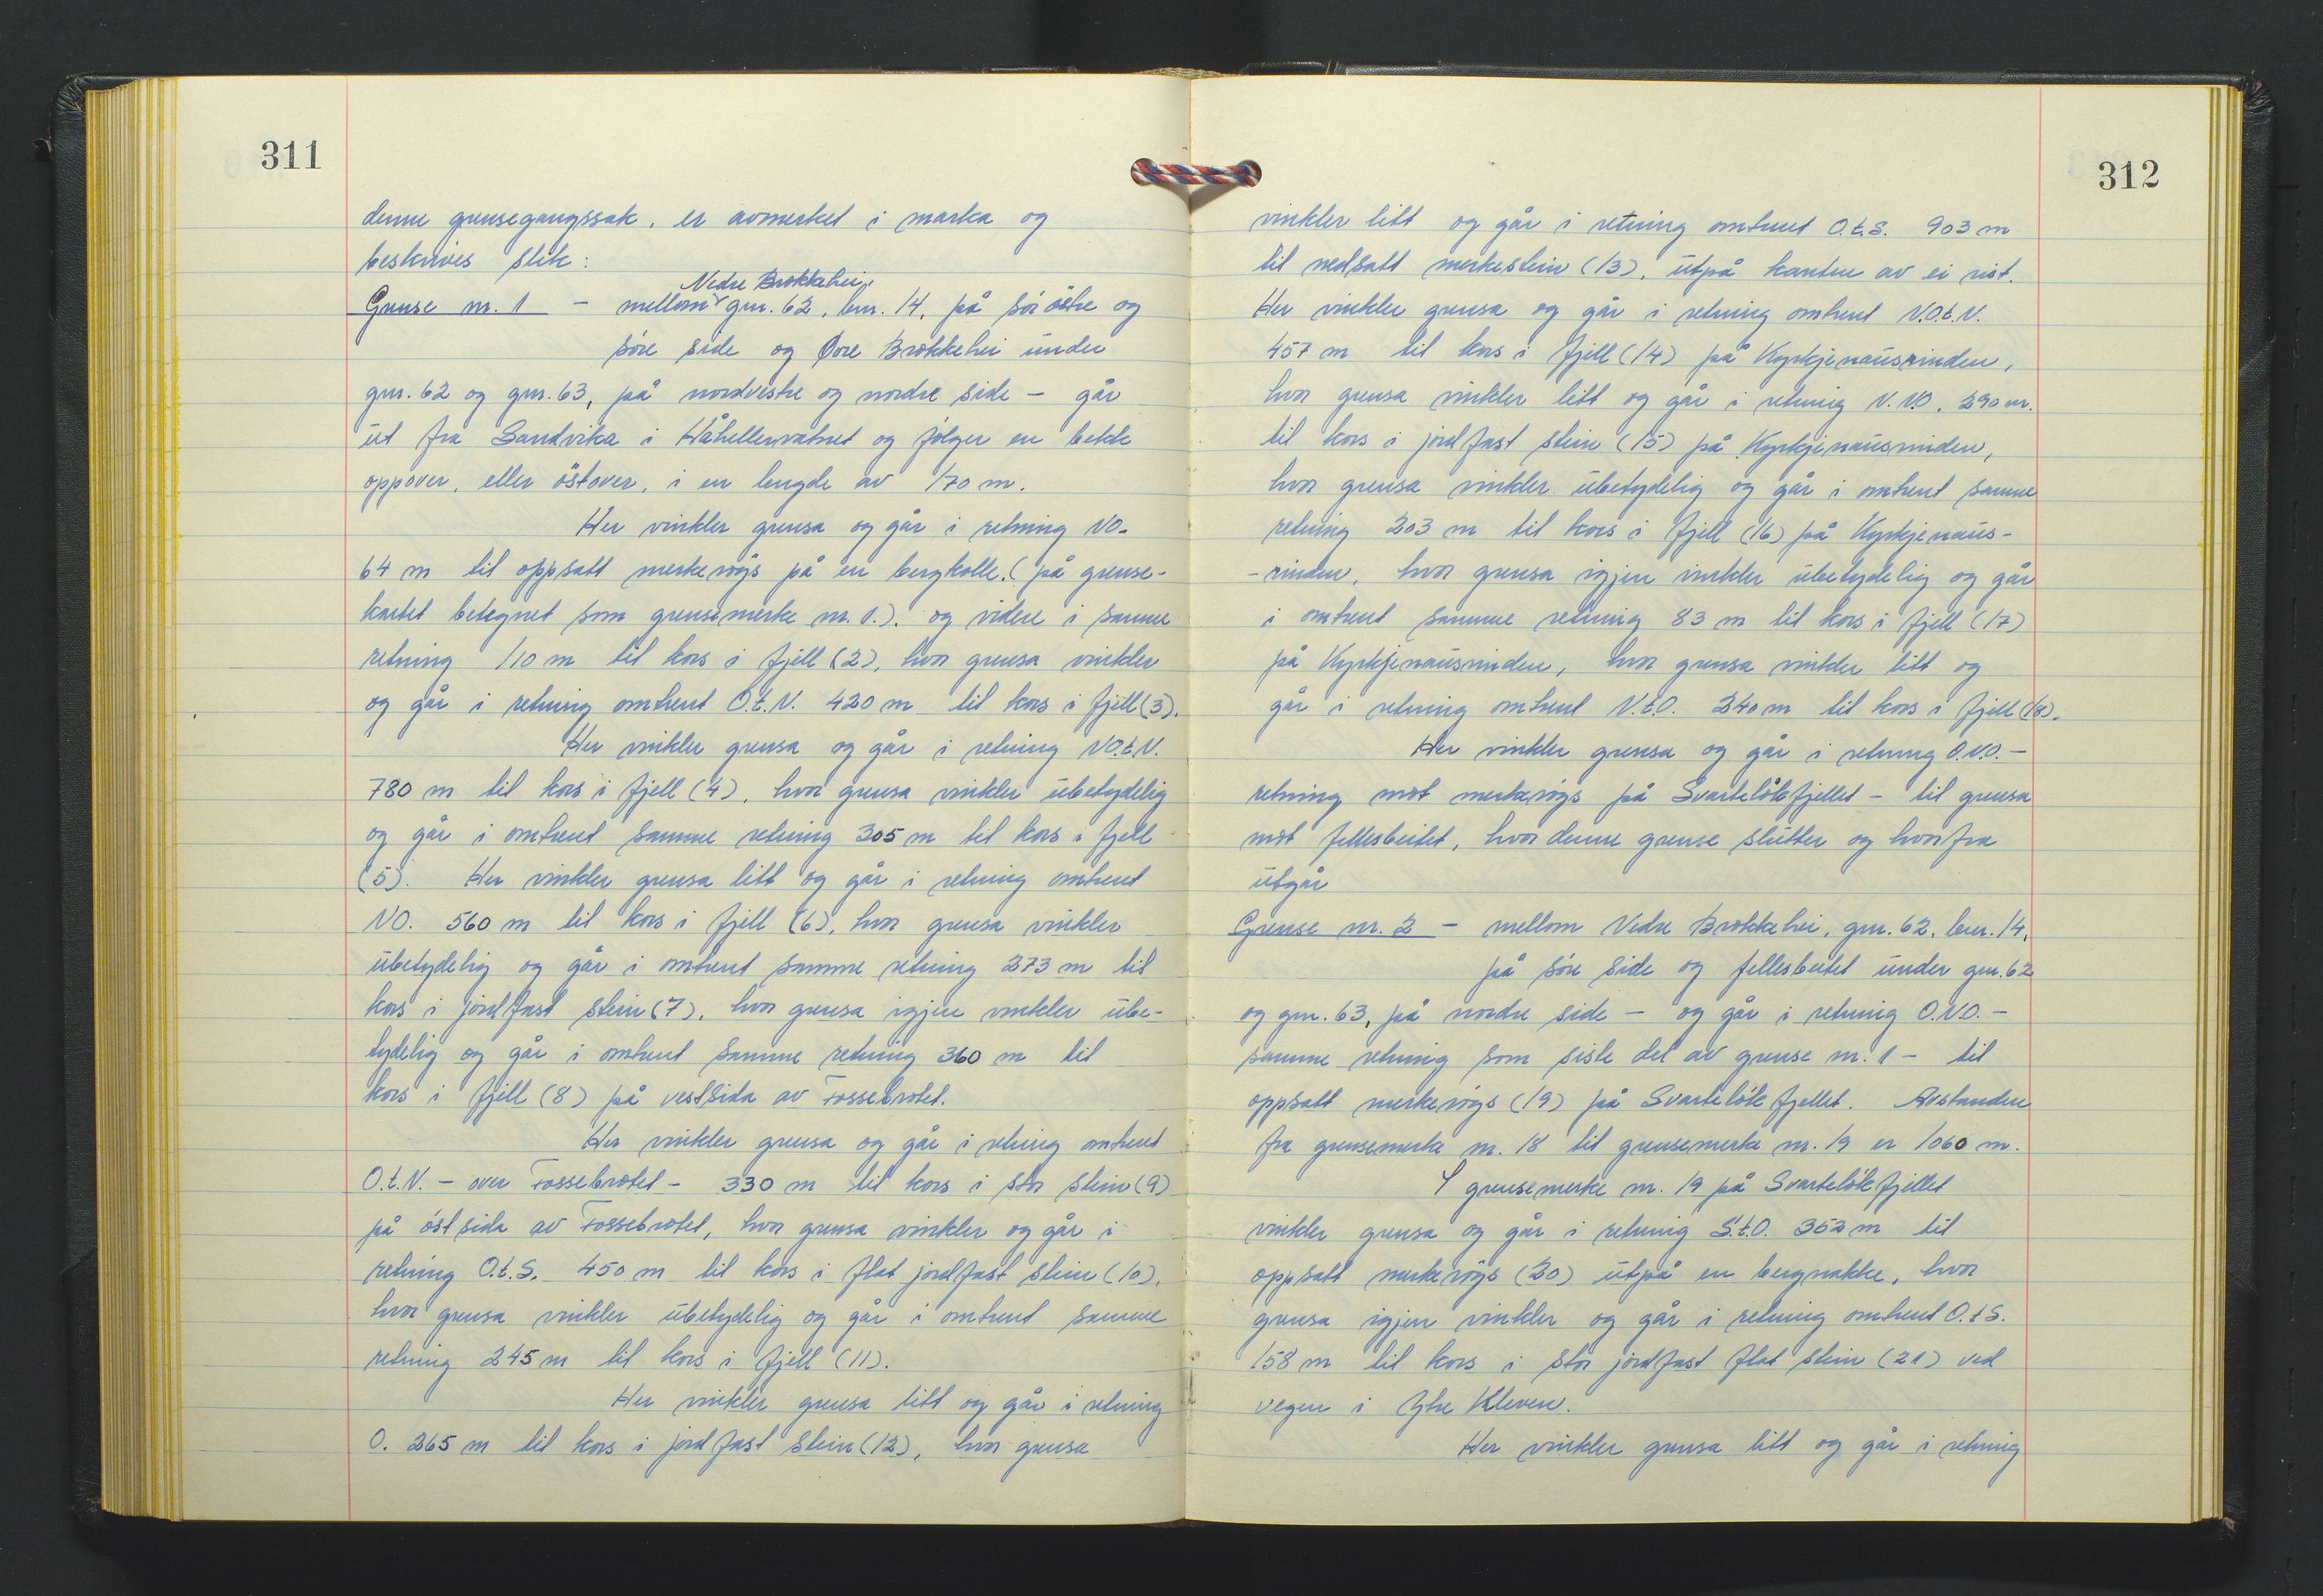 311
denne grensegangssak, er avmerket i marka og
beskrives slik:
Nedre Brokkehei,
Grense nr. 1 – mellom gnr. 62, bnr. 14, på sörøstre og
søre side og Øvre Brokkehei under
gnr. 62 og gnr. 63, på nordvestre og nordre side – går
ut fra Sandvika i Håhellervatnet og følger en bekk
oppover, eller östover, i en lengde av 170 m.
Her vinkler grensa og går i retning NO.
64 m til oppsatt merkerögs på en bergkolle. (på grense-
kartet betegnet som grensemerke nr. 1.). og videre i samme
retning 110 m til kors i fjell (2), hvor grensa vinkler
og går i retning omtrent O.t.N. 420 m til kors i fjell (3).
Her vinkler grensa og går i retning NO.t.N.
780 m til kors i fjell (4), hvor grensa vinkler ubetydelig
og går i omtrent samme retning 305 m til kors i fjell
(5). Her vinkler grensa litt og går i retning omtrent
NO. 560 m til kors i fjell (6), hvor grensa vinkler
ubetydelig og går i omtrent samme retning 273 m til
kors i jordfast stein (7), hvor grensa igjen vinkler ube-
tydelig og går i omtrent samme retning 360 m til
kors i fjell (8) på vestsida av Fossebrotet.
Her vinkler grensa og går i retning omtrent
O.t.N. – over Fossebrotet – 330 m til kors i stor stein (9)
på östsida av Fossebrotet, hvor grensa vinkler og går i
retning O.t.S. 450 m til kors i flat jordfast stein (10),
hvor grensa vinkler ubetydelig og går i omtrent samme
retning 245 m til kors i fjell (11).
Her vinkler grensa litt og går i retning
O. 265 m til kors i jordfast stein (12), hvor grensa
312
vinkler litt og går i retning omtrent O.t.S. 903 m
til nedsatt merkestein (13), utpå kanten av ei rist.
Her vinkler grensa og går i retning omtrent N.O.t.N.
457 m til kors i fjell (14) på Kyrkjenausrinden,
hvor grensa vinkler litt og går i retning N.N.O. 290 m.
til kors i jordfast stein (15) på Kyrkjenausrinden,
hvor grensa vinkler ubetydelig og går i omtrent samme
retning 203 m til kors i fjell (16) på Kyrkjenaus-
-rinden, hvor grensa igjen vinkler ubetydelig og går
i omtrent samme retning 83 m til kors i fjell (17)
på Kyrkjenausrinden, hvor grensa vinkler litt og
går i retning omtrent N.t.O. 240 m til kors i fjell (18).
Her vinkler grensa og går i retning O.N.O. –
retning mot merkerögs på Svartelökfjellet – til grensa
mot fellesbeitet, hvor denne grense slutter og hvorfra
utgår
Grense nr. 2 – mellom Nedre Brokkehei, gnr. 62, bnr. 14,
på søre side og fellesbeitet under gnr. 62
og gnr. 63, på nordre side – og går i retning O.N.O. –
samme retning som siste del av grense nr. 1 – til
oppsatt merkerögs (19) på Svartelökfjellet. Avstanden
fra grensemerke nr. 18 til grensemerke nr. 19 er 1060 m.
I grensemerke nr. 19 på Svartelökfjellet
vinkler grensa og går i retning S.t.O. 352 m til
oppsatt merkerögs (20) utpå en bergnakke, hvor
grensa igjen vinkler og går i retning omtrent O.t.S.
158 m til kors i stor jordfast flat stein (21) ved
vegen i Ytre Kleven.
Her vinkler grensa litt og går i retning